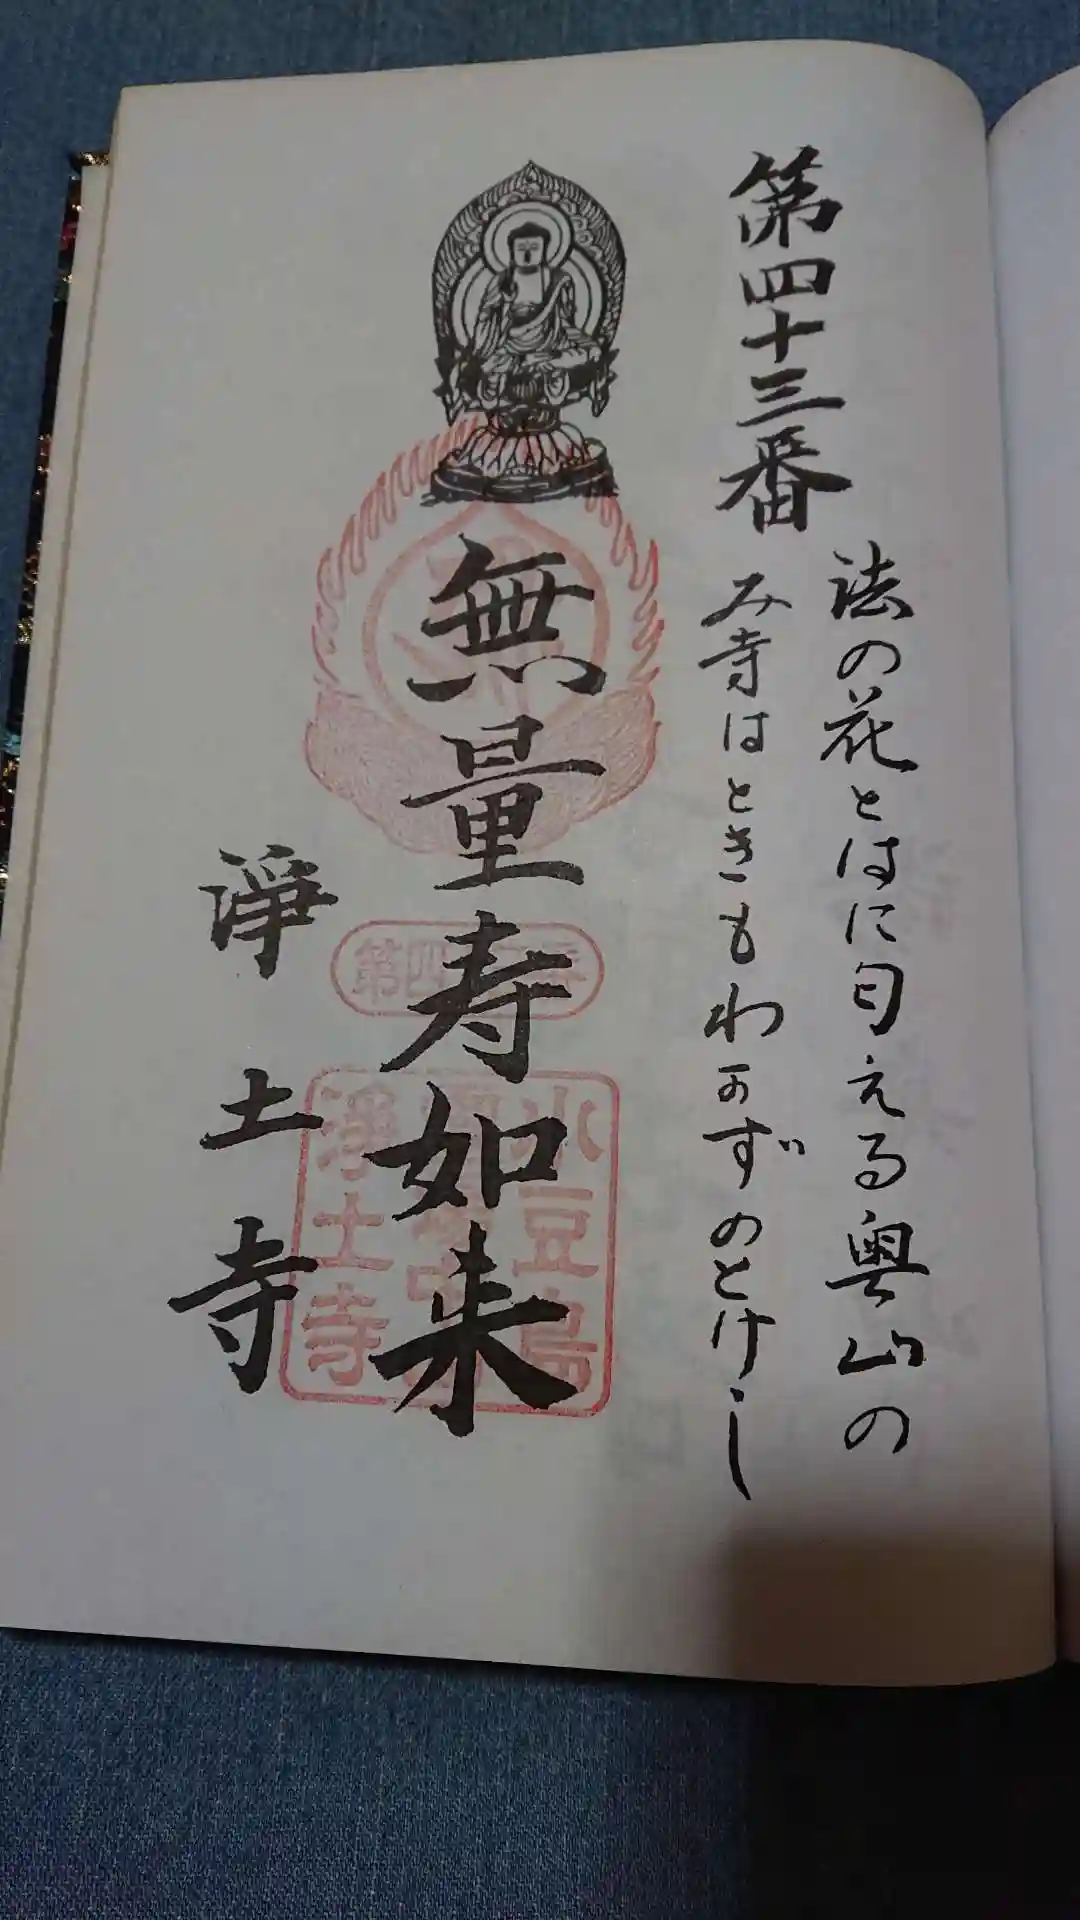 第四十三番
法の花とはに匂える奥山の
み寺はときもわかずのとけし
無量寿如来
第四
小豆島
淨土寺
淨土寺